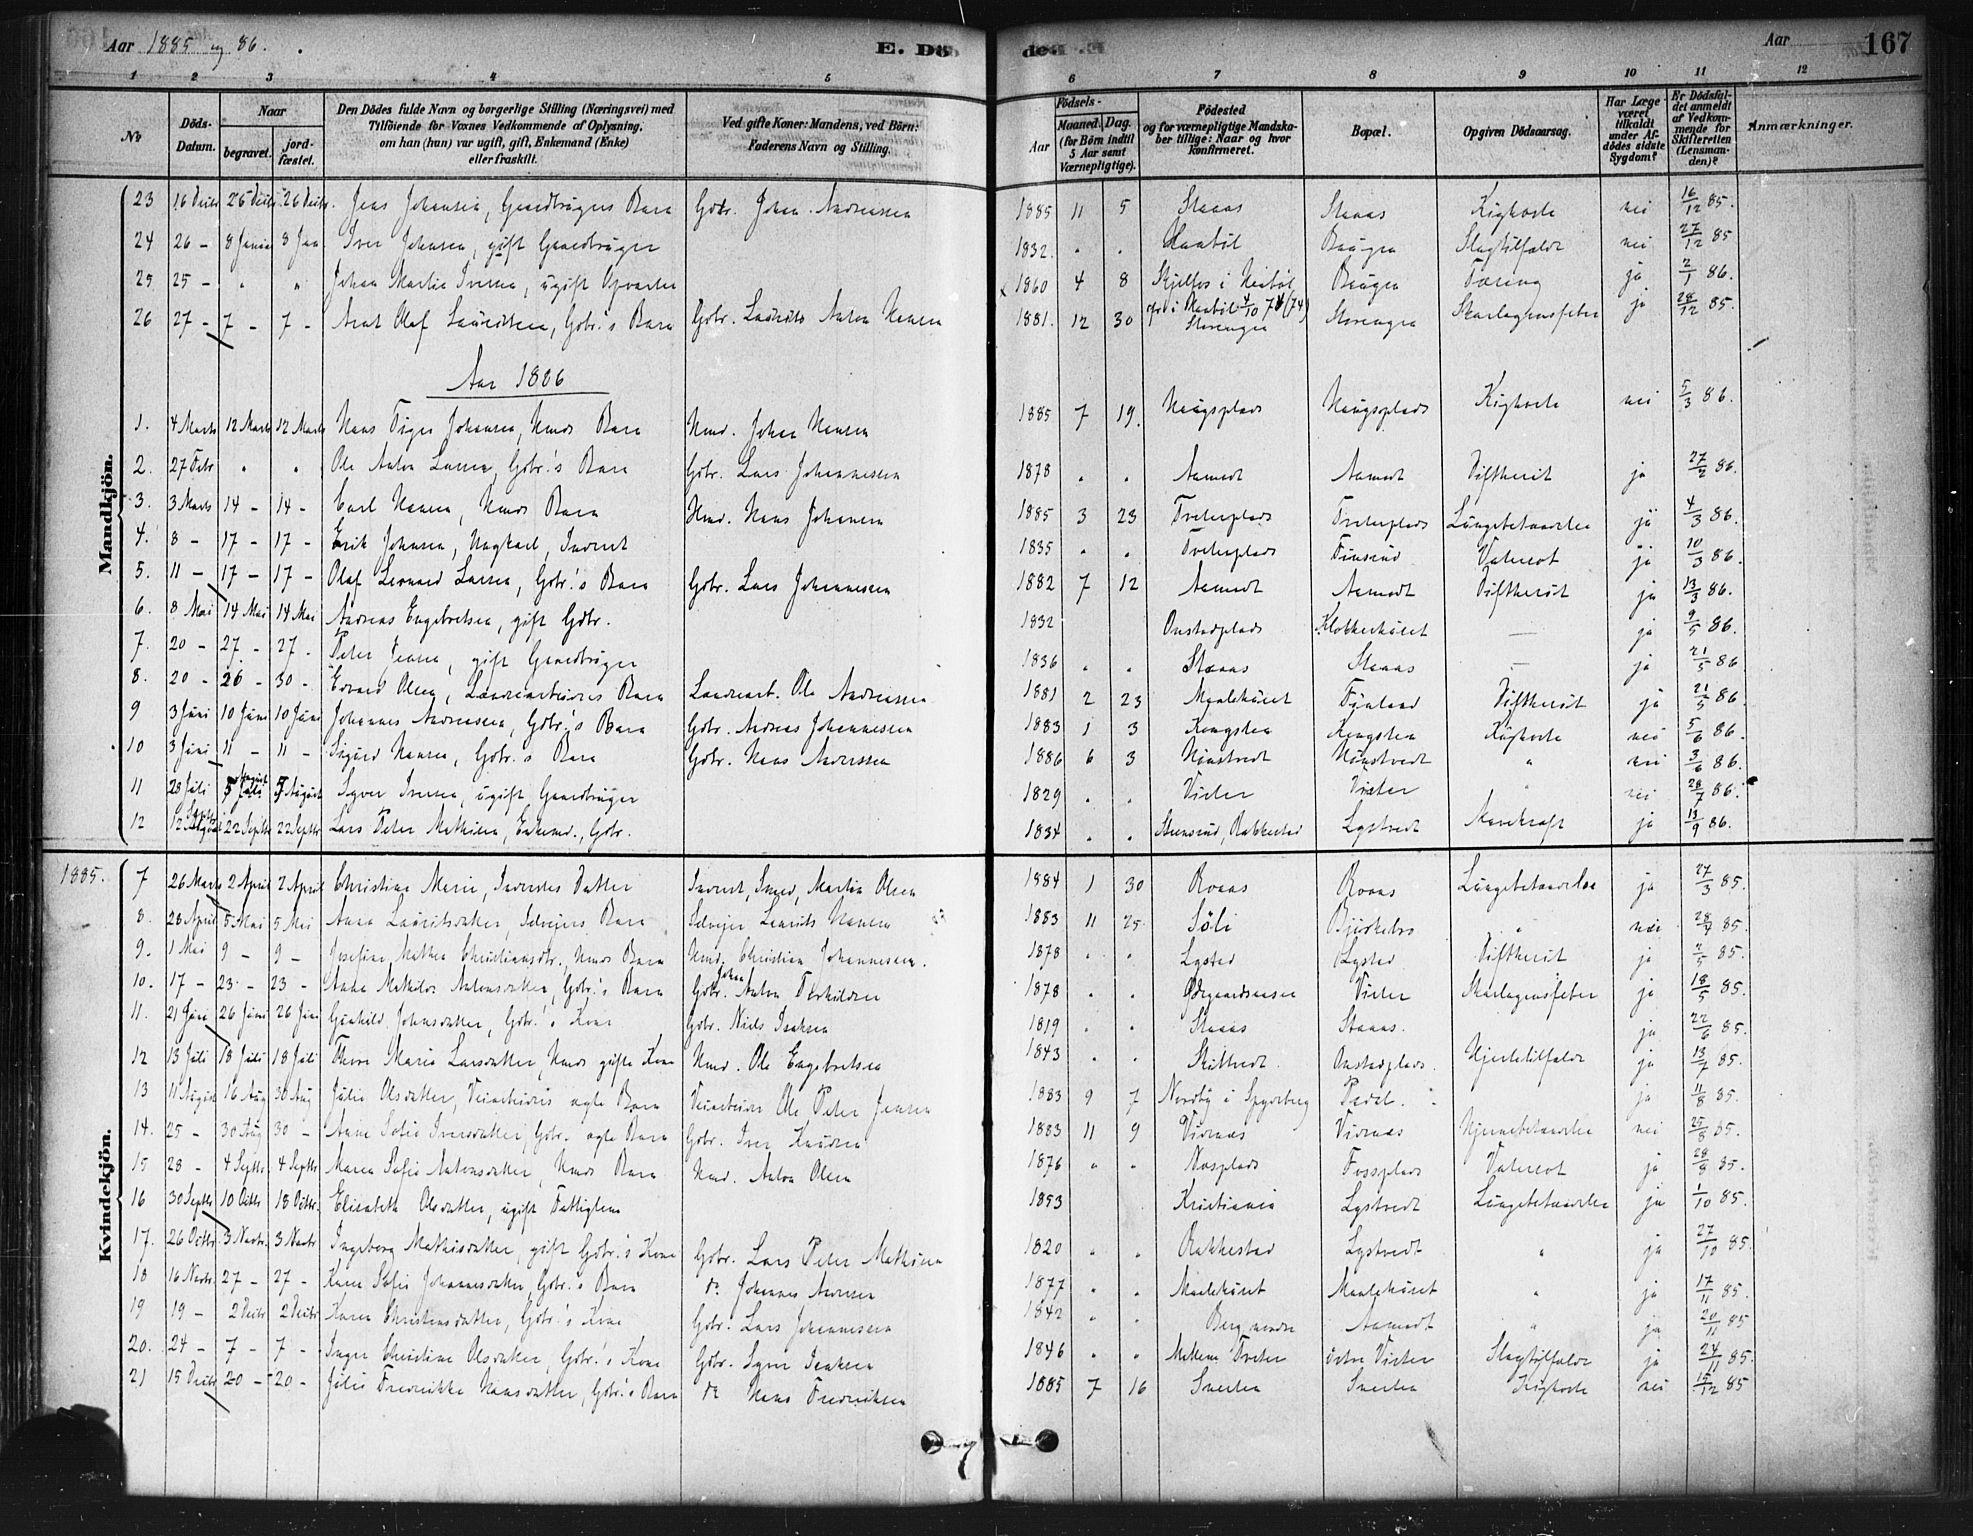 Aar 1885 og 86.
E. Döde.
Aar
167
1 2 3 4 5 6 7 8 9 10 11 12
No
Döds-Datum.
Naar
begravet.
jord-fæstet.
Den Dödes fulde Navn og borgerlige Stilling (Næringsvei) med
Tilföiende for Voxnes Vedkommende af Oplysning,
om han (hun) var ugift, gift, Enkemand (Enke)
eller fraskilt.
Ved gifte Koner: Mandens, ved Börn:
Faderens Navn og Stilling.
Födsels-
Aar
Maaned. Dag.
(for Börn indtil
5 Aar samt
Værnepligtige).
Födested
og for værnepligtige Mandska-
ber tillige: Naar og hvor
konfirmeret.
Bopæl.
Opgiven Dödsaarsag.
Har Læge
været
tilkaldt
under Af-
dödes sidste
Sygdom?
Er Dödsfal-
det anmeldt
af Vedkom-
mende for
Skifteretten
(Lensman-
den)?
Anmærkninger.
Mandkjön.
23 16 Decbr 26 Decbr. 26 Decbr. Jens Johansen, Gaardbrugers Barn Gdbr. Johan Andreassen 1885 11 5 Staaas Staaas Kighoste nei 16/12 85.
24 26 - 8 Janua 8 Jan Iver Johnsen, gift Gaardbruger 1832. " " Haabøl Baugen Slagtilfælde nei 27/12 85
25 25 - " " Johan Martin Iversen, ugift 1860 4 8 Skjelfos i Haabøl Baugen Tæring ja 2/1 86.
26 27 - 7 - 7 - Arnt Olaf Lauritsen, Gdbr.'s Barn Gdbr. Laurits Anton Hansen 1881. 12 30 Storengen Storengen Skarlagensfeber ja 28/12 85.
Aar 1886
1. 4 Marts 12 Marts 12 Marts Hans Johansen, Hmds Barn Hmd. Johan Hansen 1885 7 19. Haugsplads Haugsplads Kighoste nei 5/3 86.
2. 27 Febr " " Ole Anton Larsen, Gdbr.'s Barn Gdbr. Lars Johannessen 1878 " " Aamodt Aamodt Diftherit ja 27/2 86.
3. 3 Marts 14 - 14 - Carl Hansen, Hmds Barn Hmd. Hans Johansen 1885 3 23 Treterplads Treterplads Lungebetændelse ja 4/3 86.
4. 8 - 17 - 17 - Erik Johnsen, Inderst 1835 " " Treterplads Finsrud Vatersot ja 10/3 86.
5. 11 - 17 - 17 - Olaf Leonard Larsen, Gdbr.'s Barn Gdbr. Lars Johannessen 1882 7 12 Aamodt Aamodt Diftherit ja 13/3 86.
6. 8 Mai 14 Mai 14 Mai Andreas Engebretsen, gift Gdbr. 1832 Onstadplads Klokkerhuset — ja 9/5 86.
7. 20 - 27 - 27 - Peter Jensen, gift Gaardbruger 1836 " " Staaas Staaas — ja 21/5 86
8. 20 - 26 - 30 - Edvard Olsen, Barn Ole Andreassen 1881 2 23 Maalehuset Diftherit ja 21/5 86.
9 3 Juni 10 Juni 10 Juni Johannes Andreassen, Gdbr.'s Barn Gdbr. Andreas Johannessen 1883 1 3 Kongsten Kongsten Kighoste nei 5/6 86.
10 3 Juni 11 - 11 - Sigurd Hansen, Gdbr.s Barn Gdbr. Hans Andersen 1886 6 3 Haustvedt Haustvedt " nei 3/6 86.
11 28 Juli 5 August 5 August Syver Iversen, ugift Gaardbruger 1829 " " Vister Vister " nei 28/7 86.
12 12 Septbr 22 Septbr 22 Septbr Lars Peter Mathisen, Enkemd., Gdbr. 1834 " " Steensrud, Rakkestad Lystvedt Mavekræft ja 13/9 86.
Kvindekjön.
1885. 7 26 Marts 2 April 2 April Christine Marie, Inderstes Datter Inderst, Smed, Martin Olsen 1884 1 30 Roaas Roaas Lungebetændelse ja 27/3 85.
8. 28 April 5 Mai 5 Mai Anna Lauritsdatter, Selveiers Barn Selveier Laurits Hansen 1883 11 25. Søli Bjørkebo " nei 28/7 85.
9. 1 Mai 9 - 9 - Josefine Mathea Christiansdtr., Hmds Barn Hmd. Christian Johannessen. 1878 " " Lysted Lysted Diftherit ja 2/5 85.
10. 17 - 23 - 23 - Anna Mathilde Antonsdatter, Gdbr.'s Barn Gdbr. Johan Anton Torkildsen 1878 " " Ødegaardsaasen Vister Skarlagensfeber ja 18/5 85.
11. 21 Juni 26 Juni 26 Juni Gunhild Johnsdatter, Gdbr.'s Kone Gdbr. Niels Isaksen 1819 " " Staaas Staaas. ja 22/6 85.
12 13 Juli 18 Juli 18 Juli Thore Marie Larsdatter, Hmds gifte Kone Hmd. Ole Engebretsen 1843 " " Skiltvedt Onstadplads. Hjertetilfælde ja 13/7 85.
13 11 August 16 Aug 30 Aug Julie Olsdatter, ægte Barn Ole Peter Jensen 1883 9 7 Nordby i Spydeberg ja 11/8 85.
14. 25 - 30 Aug 30 - Anne Sofie Iversdatter, Gdbr. ægte Barn Gdbr. Iver Knudsen 1883 11 9 Vidnæs Vidnæs Hjernebetændelse nei 25/8 85.
15 28 - 4 Septbr 4 Septbr Maren Sofie Antonsdatter, Hmds Barn Hmd. Anton Olsen 1876 " " Næsplads Fossplads Vatersot ja 28/8 85.
16 30 Septbr 10 Octbr 18 Octbr. Elisabeth Olsdatter, ugift Fattiglem 1853 Kristiania Lystvedt Lungebetændelse ja 1/10 85.
17. 26 Octbr 3 Novbr. 3 Novbr Ingeborg Mathisdatter, gift Gdbr.'s Kone Gdbr. Lars Peter Mathisen 1820 " " Rakkestad Lystvedt " ja 27/10 85.
18 16 Novbr. 27 - 27 - Karen Sofie Johannesdatter, Gdbr.'s Barn do. Johannes Andersen 1877 " " Maalehuset Maalehuset " ja 17/11 85.
19 19 - 2 Decbr 2 Decbr Karen Christensdatter, Gdbr.'s Kone Gdbr. Lars Johannessen 1842 " " Berg nordre Aamodt " ja 20/11 85
20. 24 - 7 - 7 - Inger Christine Olsdatter, Gdbr.'s Kone Gdbr. Syver Isaksen 1846 " " Mellem Treter østre Vister Slagtilfælde ja 24/11 85.
21 15 Decbr 20 - 20 - Julie Fredrikke Hansdatter, Gdbr.'s Barn do Hans Fredriksen 1885 7 16 Sverten Sverten Kighoste nei 15/12 85